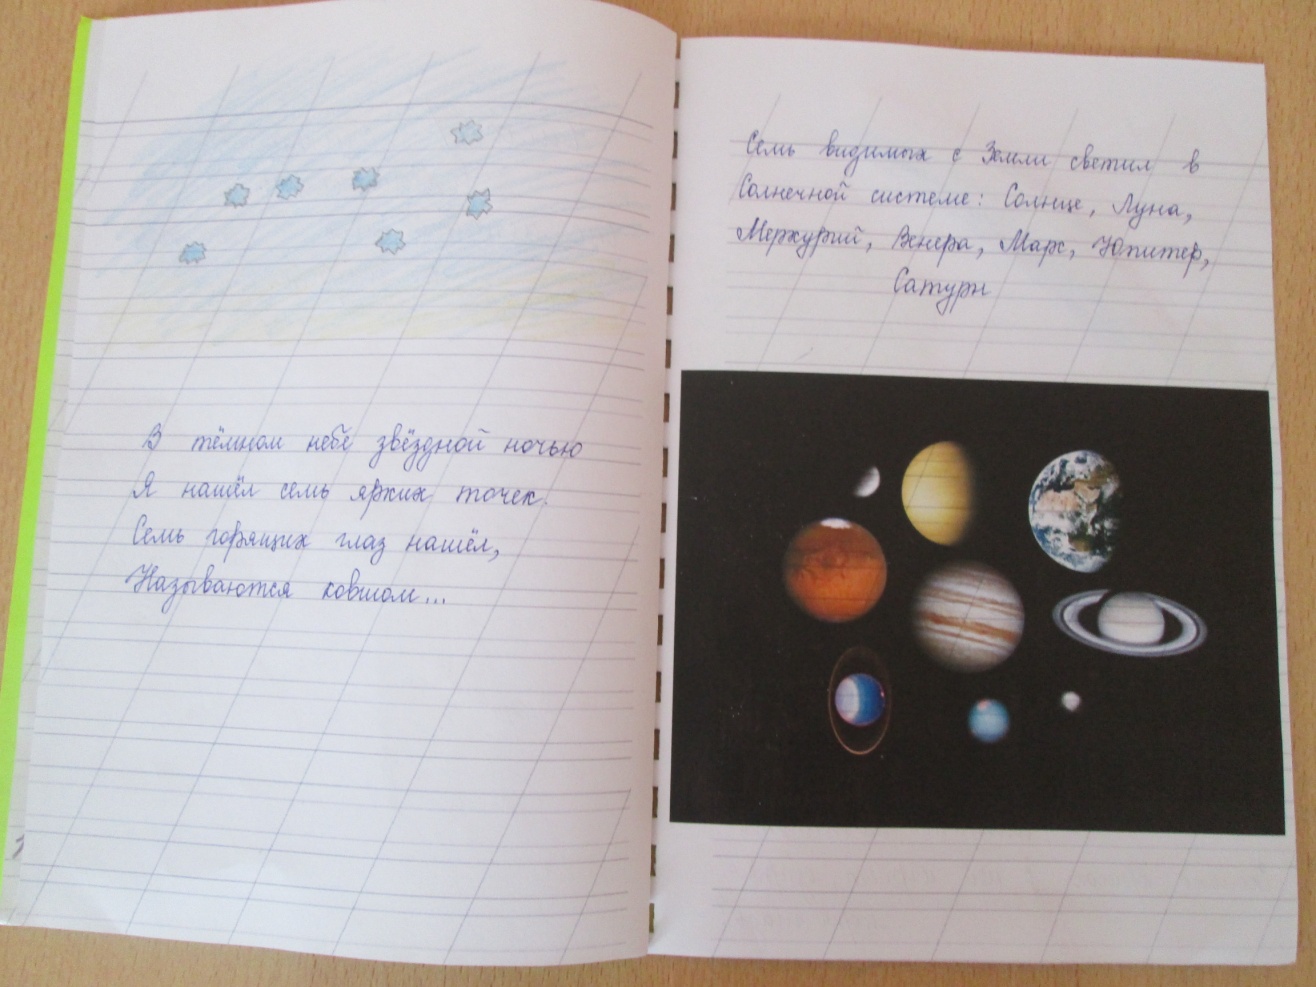 В тёмном небе звёздной ночью
Я нашёл семь ярких точек.
Семь горящих глаз нашёл,
Называются ковшом...
Семь видимых с Земли светил в
Солнечной системе: Солнце, Луна,
Меркурий, Венера, Марс, Юпитер,
Сатурн